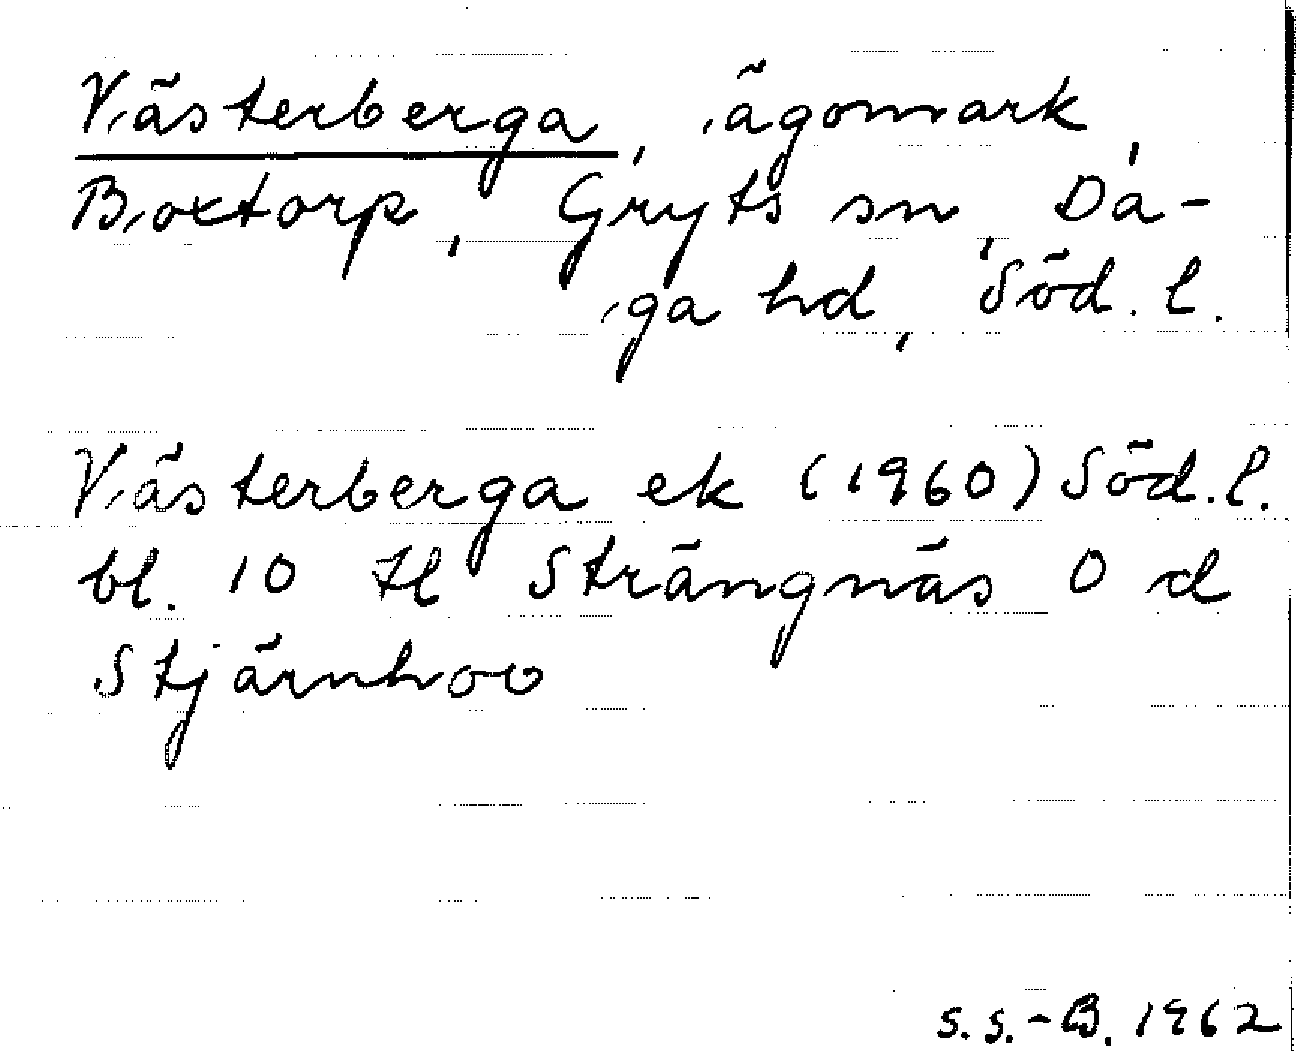 Västerberga, ägomark,
Boxtorp, Gryts sn, Da-
ga hd, Söd. l.
Västerberga ek (1960) Söd. l.
bl. 10 H Strängnäs O d
Stjärnhov
S.S.-B. 1962